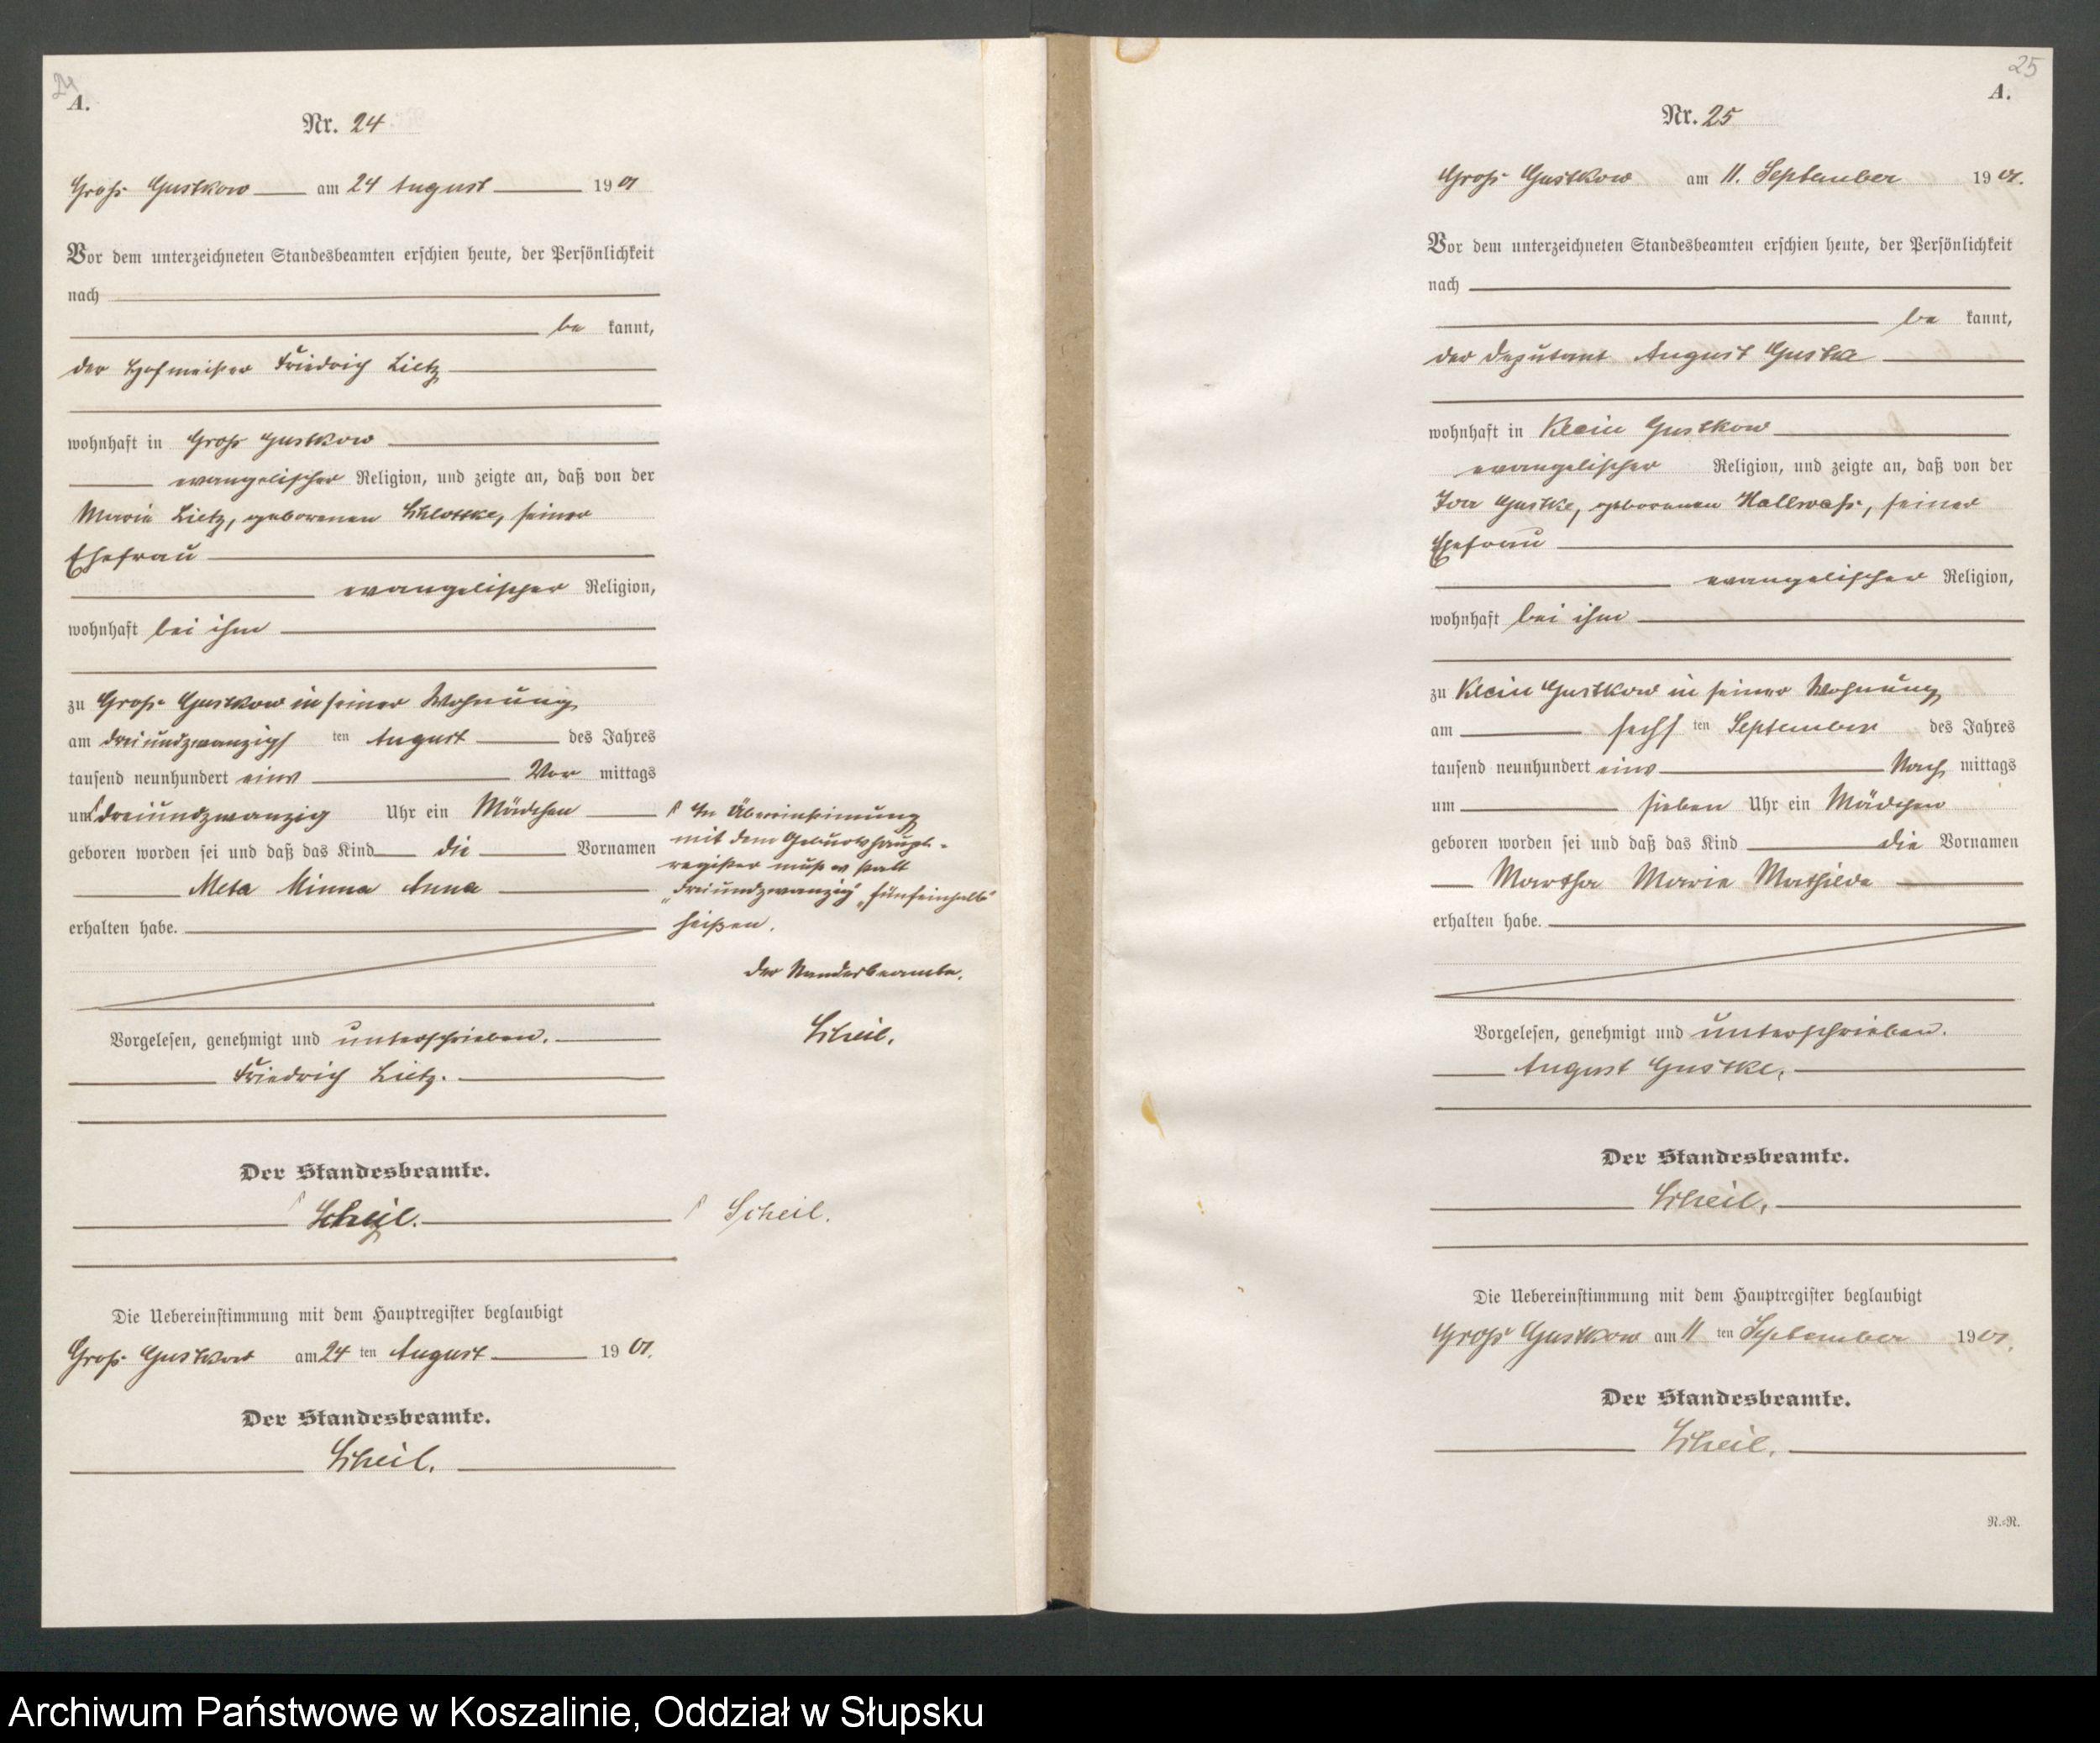 24
A.
Nr. 24
Groß Gustkow am 24 August 1901
Vor dem unterzeichneten Standesbeamten erschien heute, der Persönlichkeit
nach
be kannt,
der Hofmeister Friedrich Lietz
wohnhaft in Groß Gustkow
evangelischer Religion, und zeigte an, daß von der
Marie Lietz, geborenen Schlottke, seiner
Ehefrau
evangelischer Religion,
wohnhaft bei ihm
zu Groß Gustkow in seiner Wohnung
am dreiundzwanzigsten August des Jahres
tausend neunhundert eins Vor mittags
um dreiundzwanzig Uhr ein Mädchen
geboren worden sei und daß das Kind die Vornamen
Meta Minna Anna
erhalten habe.
Vorgelesen, genehmigt und unterschrieben.
Friedrich Lietz.
Der Standesbeamte.
Scheil.
Die Uebereinstimmung mit dem Hauptregister beglaubigt
Groß Gustkow am 24 ten August 1901.
Der Standesbeamte.
Scheil.
In Übereinstimmung
mit dem Geburtshaupt-
register muß es statt
„dreiundzwanzig" „fünfeinhalb"
heißen.
Der Standesbeamte.
Scheil.
Scheil.
25
A.
Nr. 25
Groß Gustkow am 11. September 1901.
Vor dem unterzeichneten Standesbeamten erschien heute, der Persönlichkeit
nach
be kannt,
der Deputant August Gustke
wohnhaft in Klein Gustkow
evangelischer Religion, und zeigte an, daß von der
Ida Gustke, geborenen Hallwaß, seiner
Ehefrau
evangelischer Religion,
wohnhaft bei ihm
zu Klein Gustkow in seiner Wohnung
am sechs ten September des Jahres
tausend neunhundert eins Nach mittags
um sieben Uhr ein Mädchen
geboren worden sei und daß das Kind die Vornamen
Martha Marie Mathilde
erhalten habe.
Vorgelesen, genehmigt und unterschrieben.
August Gustke.
Der Standesbeamte.
Scheil.
Die Uebereinstimmung mit dem Hauptregister beglaubigt
Groß Gustkow am 11 ten September 1901.
Der Standesbeamte.
Scheil.
N.=R.
Archiwum Państwowe w Koszalinie, Oddział w Słupsku